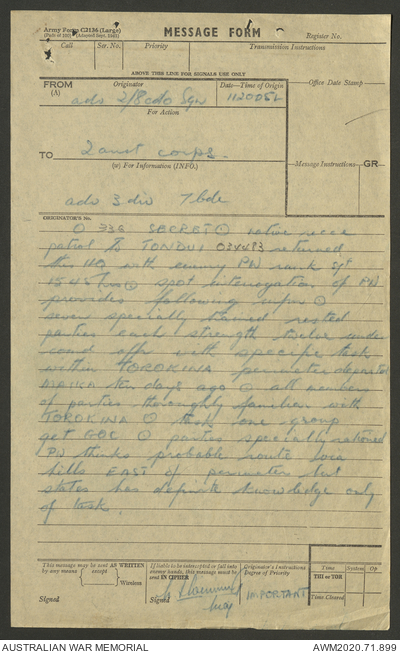 Army Form C2136 (Large)
MESSAGE FORM
Register No.
Call
Ser. No.
Priority
Transmission Instructions
ABOVE THIS LINE FOR SIGNALS USE ONLY
FROM
(A)
Originator
Date—Time of Origin
Office Date Stamp
adv 2/8 cdo Sqn
For Action
TO
2 aust corps.
(W) For Information (INFO.)
Message Instructions
GR
adv 3 div 7 bde
ORIGINATOR'S No.
O 336 SECRET native recce
patrol to TONDUI 034483 returned
this HQ with enemy PW rank Sgt
1545 hrs spot interrogation of PW
provides following infm
seven specially trained rested
parties each strength twelve under
comd offr with specific task
within TOROKINA perimeter departed
ten days ago all members
of parties thoroughly familiar with
TOROKINA task one group
get GOC parties specially rationed
PW thinks probable route via
hills EAST of perimeter but
states has definite knowledge only
of task
This message may be sent AS WRITTEN
by any means except
Wireless
Signed
If liable to be intercepted or fall into
enemy hands, this message must be
sent IN CIPHER
Signed
Maj
Originator's Instructions
Degree of Priority
IMPORTANT
Time
System
Op
THI or TOR
Time Cleared
AUSTRALIAN WAR MEMORIAL
AWM2020.71.899